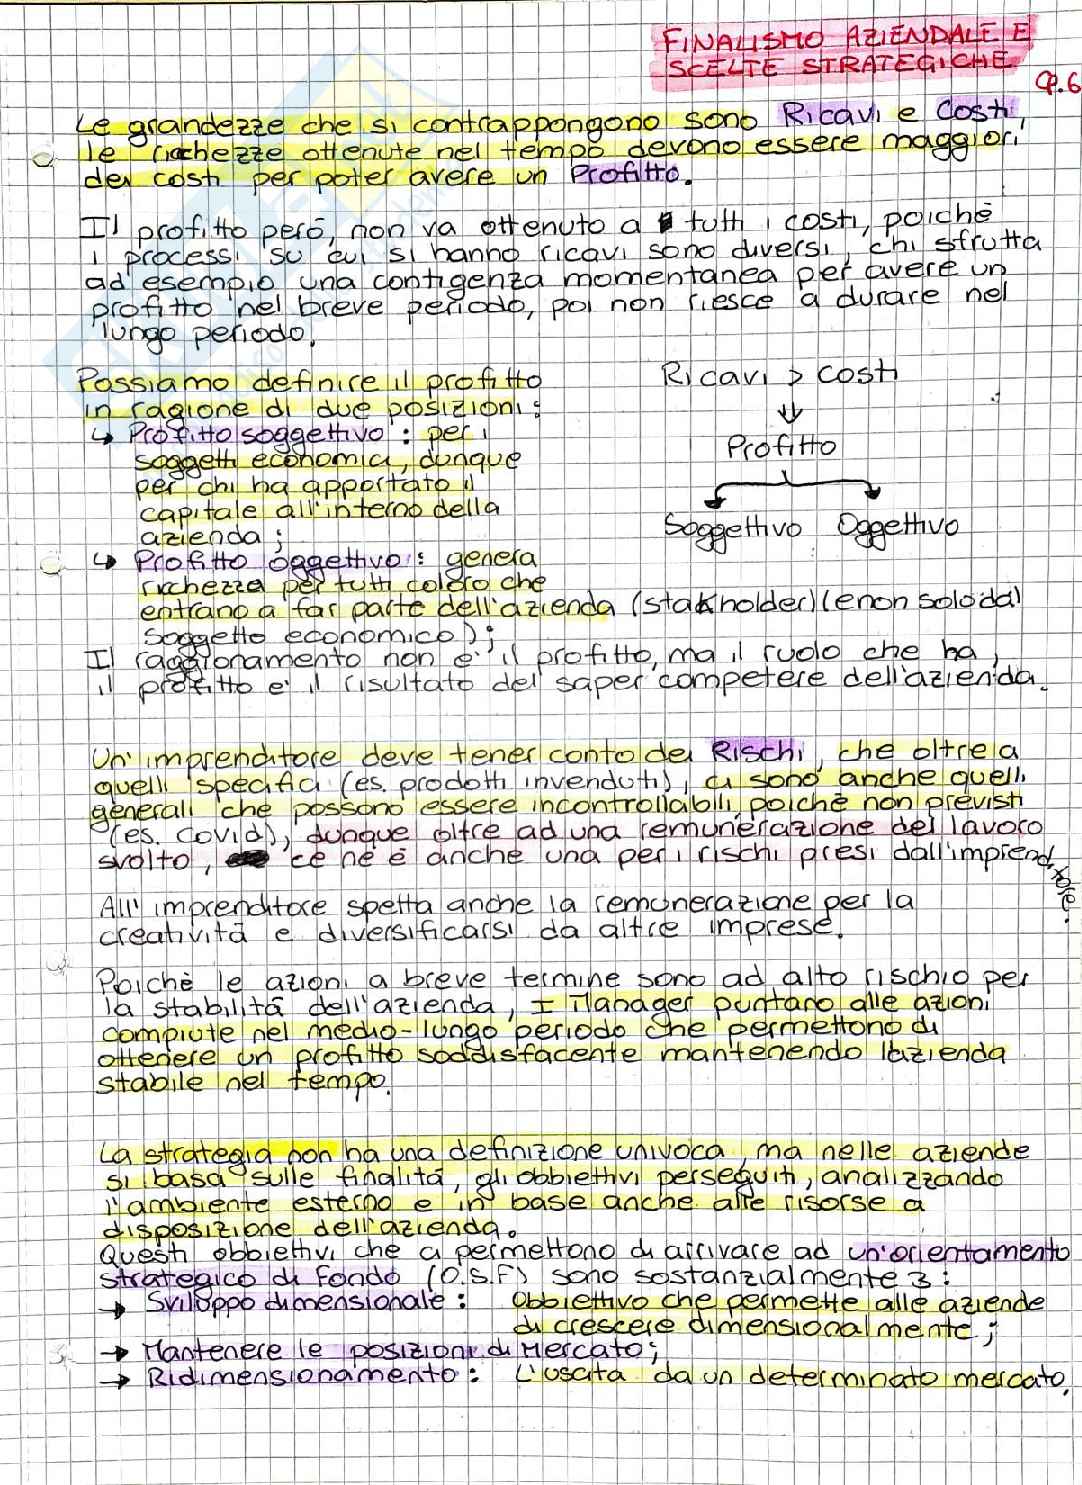 FINALISMO AZIENDALE E
SCELTE STRATEGICHE
CP.6
Le grandezze che si contrappongono sono Ricavi e Costi,
le ricchezze ottenute nel tempo devono essere maggiori
dei costi per poter avere un Profitto.
Il profitto però, non va ottenuto a tutti i costi, poichè
i processi su cui si hanno ricavi sono diversi, chi sfrutta
ad esempio una contigenza momentanea per avere un
profitto nel breve periodo, poi non riesce a durare nel
lungo periodo.
Possiamo definire il profitto
in ragione di due posizioni:
↳ Profitto soggettivo: per i
soggetti economici, dunque
per chi ha apportato il
capitale all'interno della
azienda;
↳ Profitto oggettivo: genera
ricchezza per tutti coloro che
entrano a far parte dell'azienda (stakholder) (e non solo dal
soggetto economico);
Ricavi > costi
⇓
Profitto
Soggettivo Oggettivo
Il raggionamento non è il profitto, ma il ruolo che ha,
il profitto e' il risultato del saper competere dell'azienda.
Un' imprenditore deve tener conto dei Rischi, che oltre a
quelli specifici (es. prodotti invenduti), ci sono anche quelli
generali che possono essere incontrollabili, poichè non previsti
(es. Covid), dunque oltre ad una remunerazione del lavoro
svolto, ce ne è anche una per i rischi presi dall'imprenditore.
All' imprenditore spetta anche la remunerazione per la
creatività e diversificarsi da altre imprese.
Poichè le azioni a breve termine sono ad alto rischio per
la stabilità dell'azienda, I Manager puntano alle azioni
compiute nel medio-lungo periodo che permettono di
ottenere un profitto soddisfacente mantenendo l'azienda
stabile nel tempo.
La strategia non ha una definizione univoca, ma nelle aziende
si basa sulle finalità, gli obbiettivi perseguiti, analizzando
l'ambiente esterno e in base anche alle risorse a
disposizione dell'azienda.
Questi obbiettivi che ci permettono di arrivare ad un'orientamento
strategico di fondo (O.S.F) sono sostanzialmente 3:
→ Sviluppo dimensionale: Obbiettivo che permette alle aziende
di crescere dimensionalmente;
→ Mantenere le posizioni di Mercato;
→ Ridimensionamento: L'uscita da un determinato mercato.